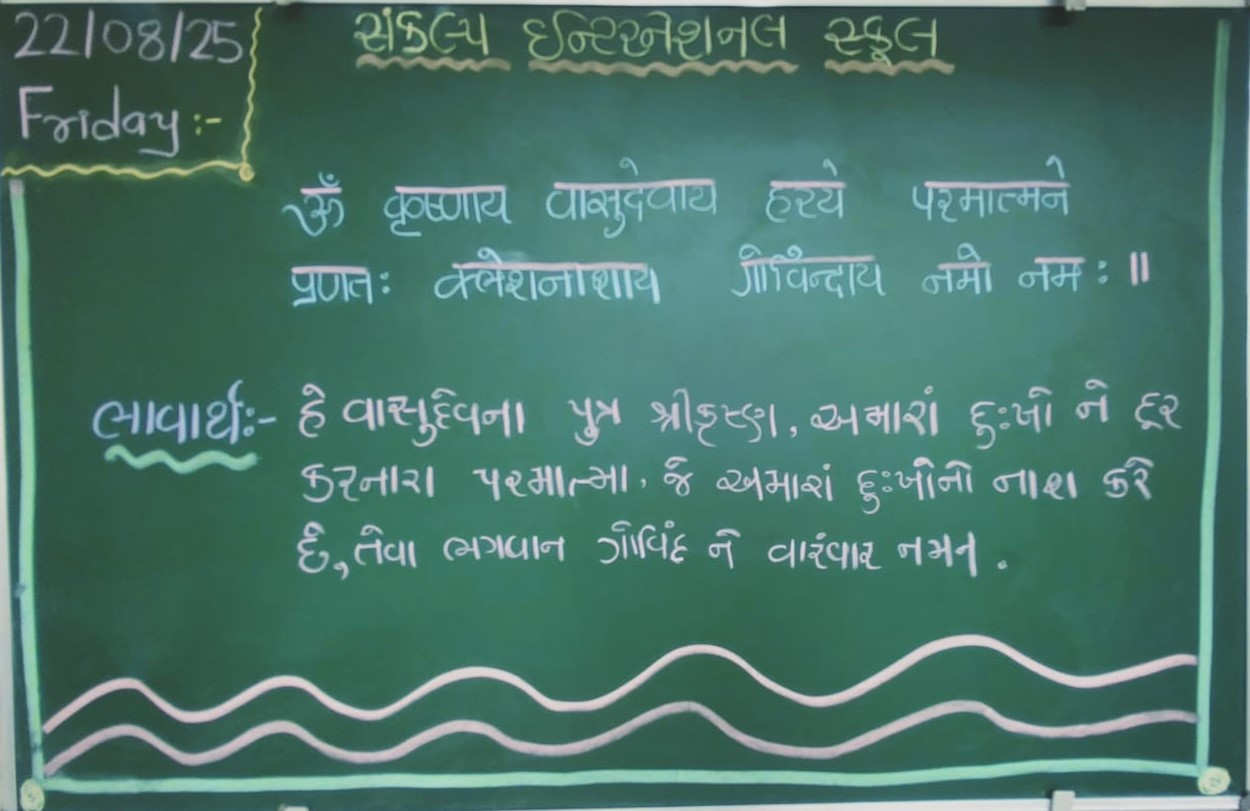 22/08/25
Friday :-
સંકલ્પ ઇન્ટરનેશનલ સ્કુલ
ॐ कृष्णाय वासुदेवाय हरये परमात्मने
प्रणतः क्लेशनाशाय गोविन्दाय नमो नमः ॥
ભાવાર્થઃ- હે વાસુદેવના પુત્ર શ્રીકૃષ્ણ, અમારાં દુઃખો ને દૂર
કરનારા પરમાત્મા. જે અમારાં દુઃખોનો નાશ કરે
છે, તેવા ભગવાન ગોવિંદ ને વારંવાર નમન.